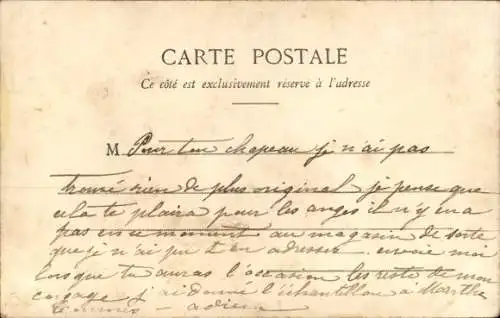 CARTE POSTALE
Ce côté est exclusivement réservé à l'adresse
M Pour ton chapeau je n'ai pas
trouvé rien de plus original je pense que
cela te plaira pour les anges il n'y en a
pas en ce moment au magasin de sorte
que je n'ai pu t'en adresser envoie moi
lorsque tu auras l'occasion les reste de mon
corsage j'ai donné l'échantillon à Marthe
adieu